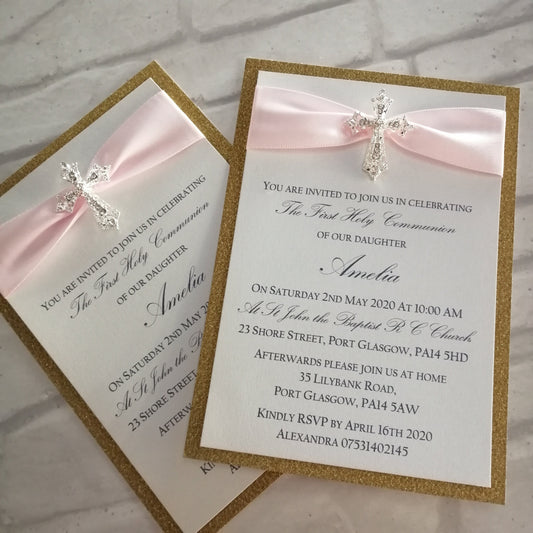 You are invited to join us in celebrating
The First Holy Communion
of our daughter
Amelia
On Saturday 2nd May 2020 at 10:00 am
At St John the Baptist R C Church
23 Shore Street, Port Glasgow, PA14 5HD
Afterwards please join us at home
35 Lilybank Road,
Port Glasgow, PA14 5AW
Kindly RSVP by April 16th 2020
Alexandra 07531402145
You are invited to join us in celebrating
The First Holy Communion
of our daughter
Amelia
On Saturday 2nd May
At St John the
23 Shore Street,
Afterwards
Kindly